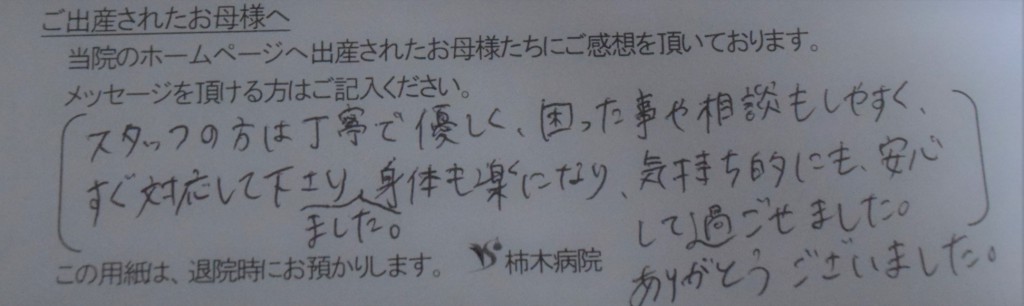 ご出産されたお母様へ
当院のホームページへ出産されたお母様たちにご感想を頂いております。
メッセージを頂ける方はご記入ください。
スタッフの方は丁寧で優しく、困った事や相談もしやすく、
すぐ対応して下さり、身体も楽になり、気持ち的にも、安心
ました。
して過ごせました。
ありがとうございました。
この用紙は、退院時にお預かりします。
柿木病院